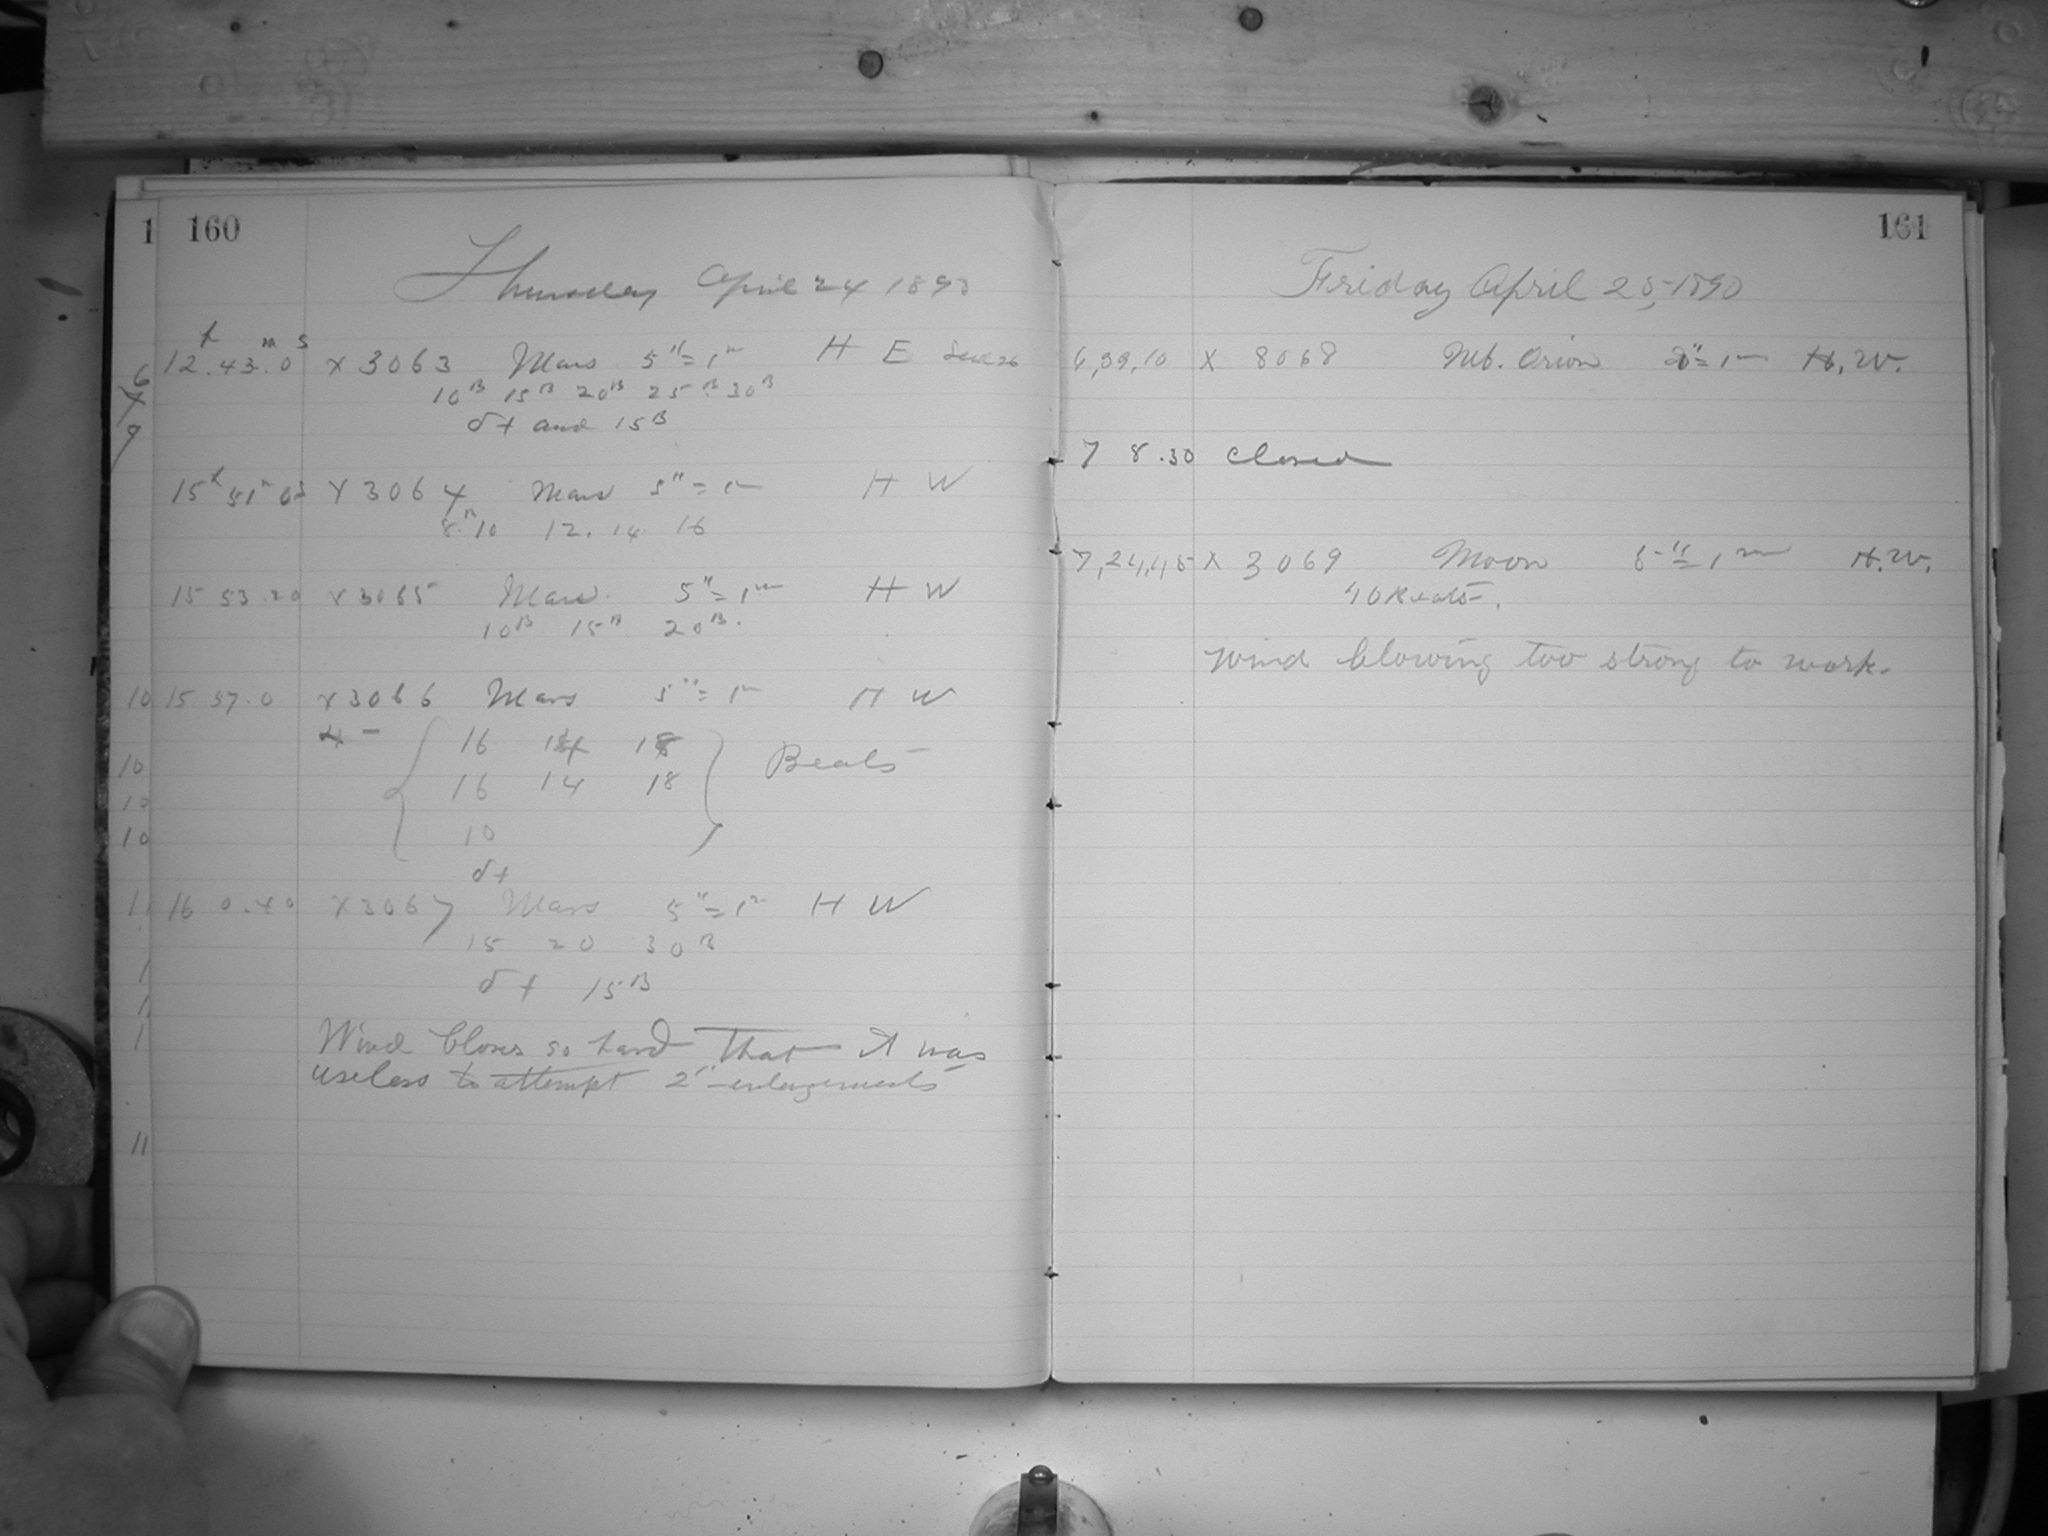 160
Thursday April 24 1890
h m s
12.43.0 X 3063 Mars 5"=1m H E
10B 15B 20B 25B 30B
δ+ and 15B
15h 51m 0s X 3064 Mars 5"=1m H W
8B 10 12. 14. 16
15 53.20 X 3065 Mars. 5"=1m H W
10B 15B 20B.
15 57.0 X 3066 Mars 5"=1m H W
16 14 18
16 14 18 Beats
10
δ+
16 0.40 X 3067 Mars 5"=1m H W
15 20 30B
δ+ 15B
Wind blows so hard that it was
useless to attempt 2" enlargements
161
Friday April 25, 1890
6,39,10 X 3068 Neb. Orion H.W.
7 8.30 Closed
7,24,45 X 3069 Moon 5"=1m H.W.
Wind blowing too strong to work.